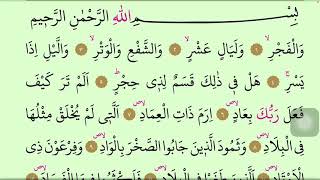 بِسْــــــــمِ اللهِ الرَّحْمٰنِ الرَّح۪يمِ
وَالْفَجْرِ ۙ ﴿١﴾ وَلَيَالٍ عَشْرٍ ۙ ﴿٢﴾ وَالشَّفْعِ وَالْوَتْرِ ۙ ﴿٣﴾ وَالَّيْلِ اِذَا
يَسْرِ ۚ ﴿٤﴾ هَلْ ف۪ي ذٰلِكَ قَسَمٌ لِذ۪ي حِجْرٍ ۜ ﴿٥﴾ اَلَمْ تَرَ كَيْفَ
فَعَلَ رَبُّكَ بِعَادٍ ۙۖ ﴿٦﴾ اِرَمَ ذَاتِ الْعِمَادِ ۙۖ ﴿٧﴾ اَلَّت۪ي لَمْ يُخْلَقْ مِثْلُهَا
فِي الْبِلَادِ ۙۖ ﴿٨﴾ وَثَمُودَ الَّذ۪ينَ جَابُوا الصَّخْرَ بِالْوَادِ ۙۖ ﴿٩﴾ وَفِرْعَوْنَ ذِي